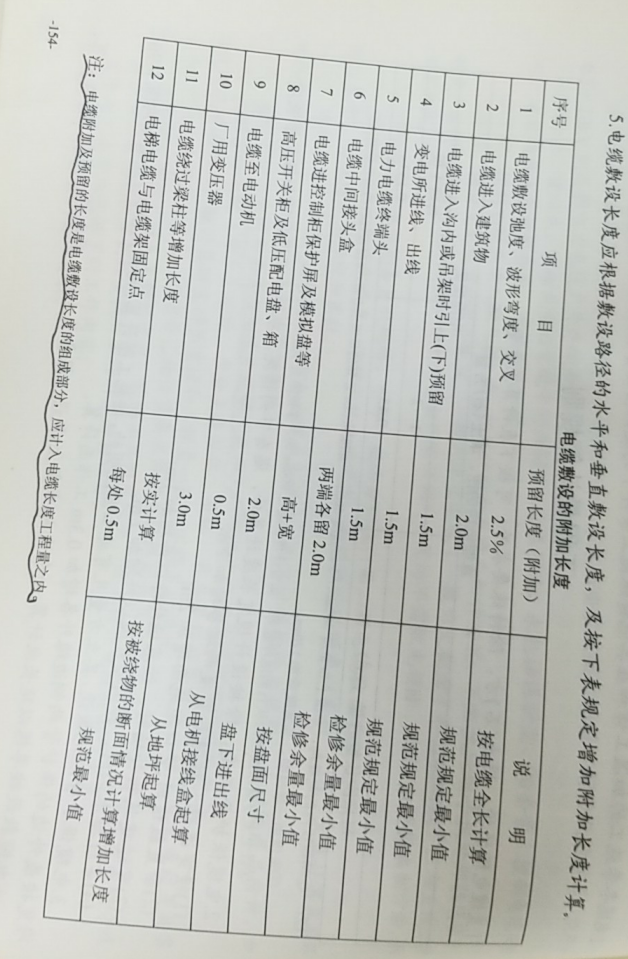 5.电缆敷设长度应根据敷设路径的水平和垂直敷设长度，及按下表规定增加附加长度计算。
电缆敷设的附加长度
序号 项 目 预留长度（附加） 说 明
1 电缆敷设弛度、波形弯度、交叉 2.5% 按电缆全长计算
2 电缆进入建筑物 2.0m 规范规定最小值
3 电缆进入沟内或吊架时引上(下)预留 1.5m 规范规定最小值
4 变电所进线、出线 1.5m 规范规定最小值
5 电力电缆终端头 1.5m 检修余量最小值
6 电缆中间接头盒 两端各留 2.0m 检修余量最小值
7 电缆进控制柜保护屏及模拟盘等 高+宽 按盘面尺寸
8 高压开关柜及低压配电盘、箱 2.0m 盘下进出线
9 电缆至电动机 0.5m 从电机接线盒起算
10 厂用变压器 3.0m 从地坪起算
11 电缆绕过梁柱等增加长度 按实计算 按被绕物的断面情况计算增加长度
12 电梯电缆与电缆架固定点 每处 0.5m 规范最小值
注：电缆附加及预留的长度是电缆敷设长度的组成部分，应计入电缆长度工程量之内。
-154-